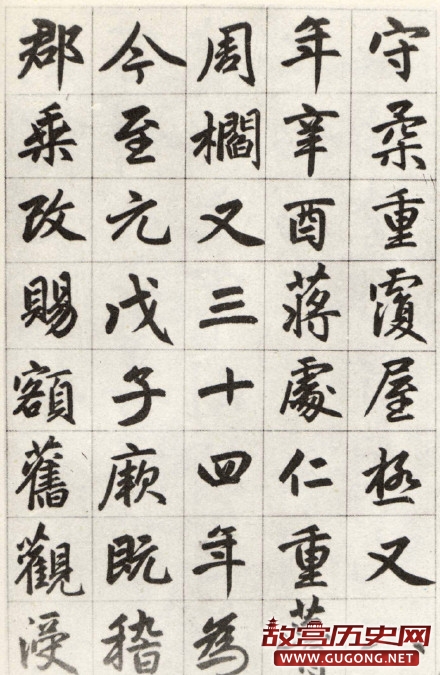 守柔重覆屋極又
年辛酉蔣處仁重
周櫩又三十四年為
今至元戊子厥既稽
郡乘改賜額舊觀浸
故宫历史网
WWW.GUGONG.NET